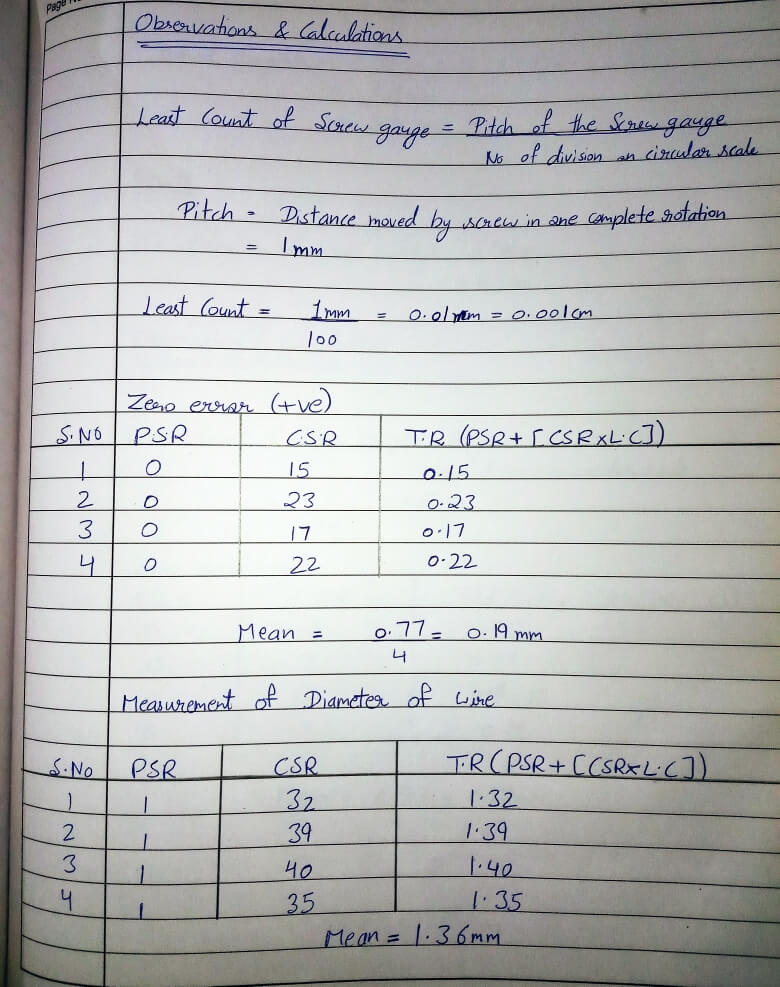 Page No
Observations & Calculations
Least Count of Screw gauge = Pitch of the Screw gauge
No of division on circular scale
Pitch = Distance moved by screw in one complete rotation
= 1mm
Least Count = 1mm = 0.01mm = 0.001cm
100
Zero error (+ve)
S.No PSR C.S.R T.R (PSR + [CSR x L.C])
1 0 15 0.15
2 0 23 0.23
3 0 17 0.17
4 0 22 0.22
Mean = 0.77 = 0.19 mm
4
Measurement of Diameter of wire
S.No PSR CSR T.R (PSR + [CSR x L.C])
1 1 32 1.32
2 1 39 1.39
3 1 40 1.40
4 1 35 1.35
Mean = 1.36mm